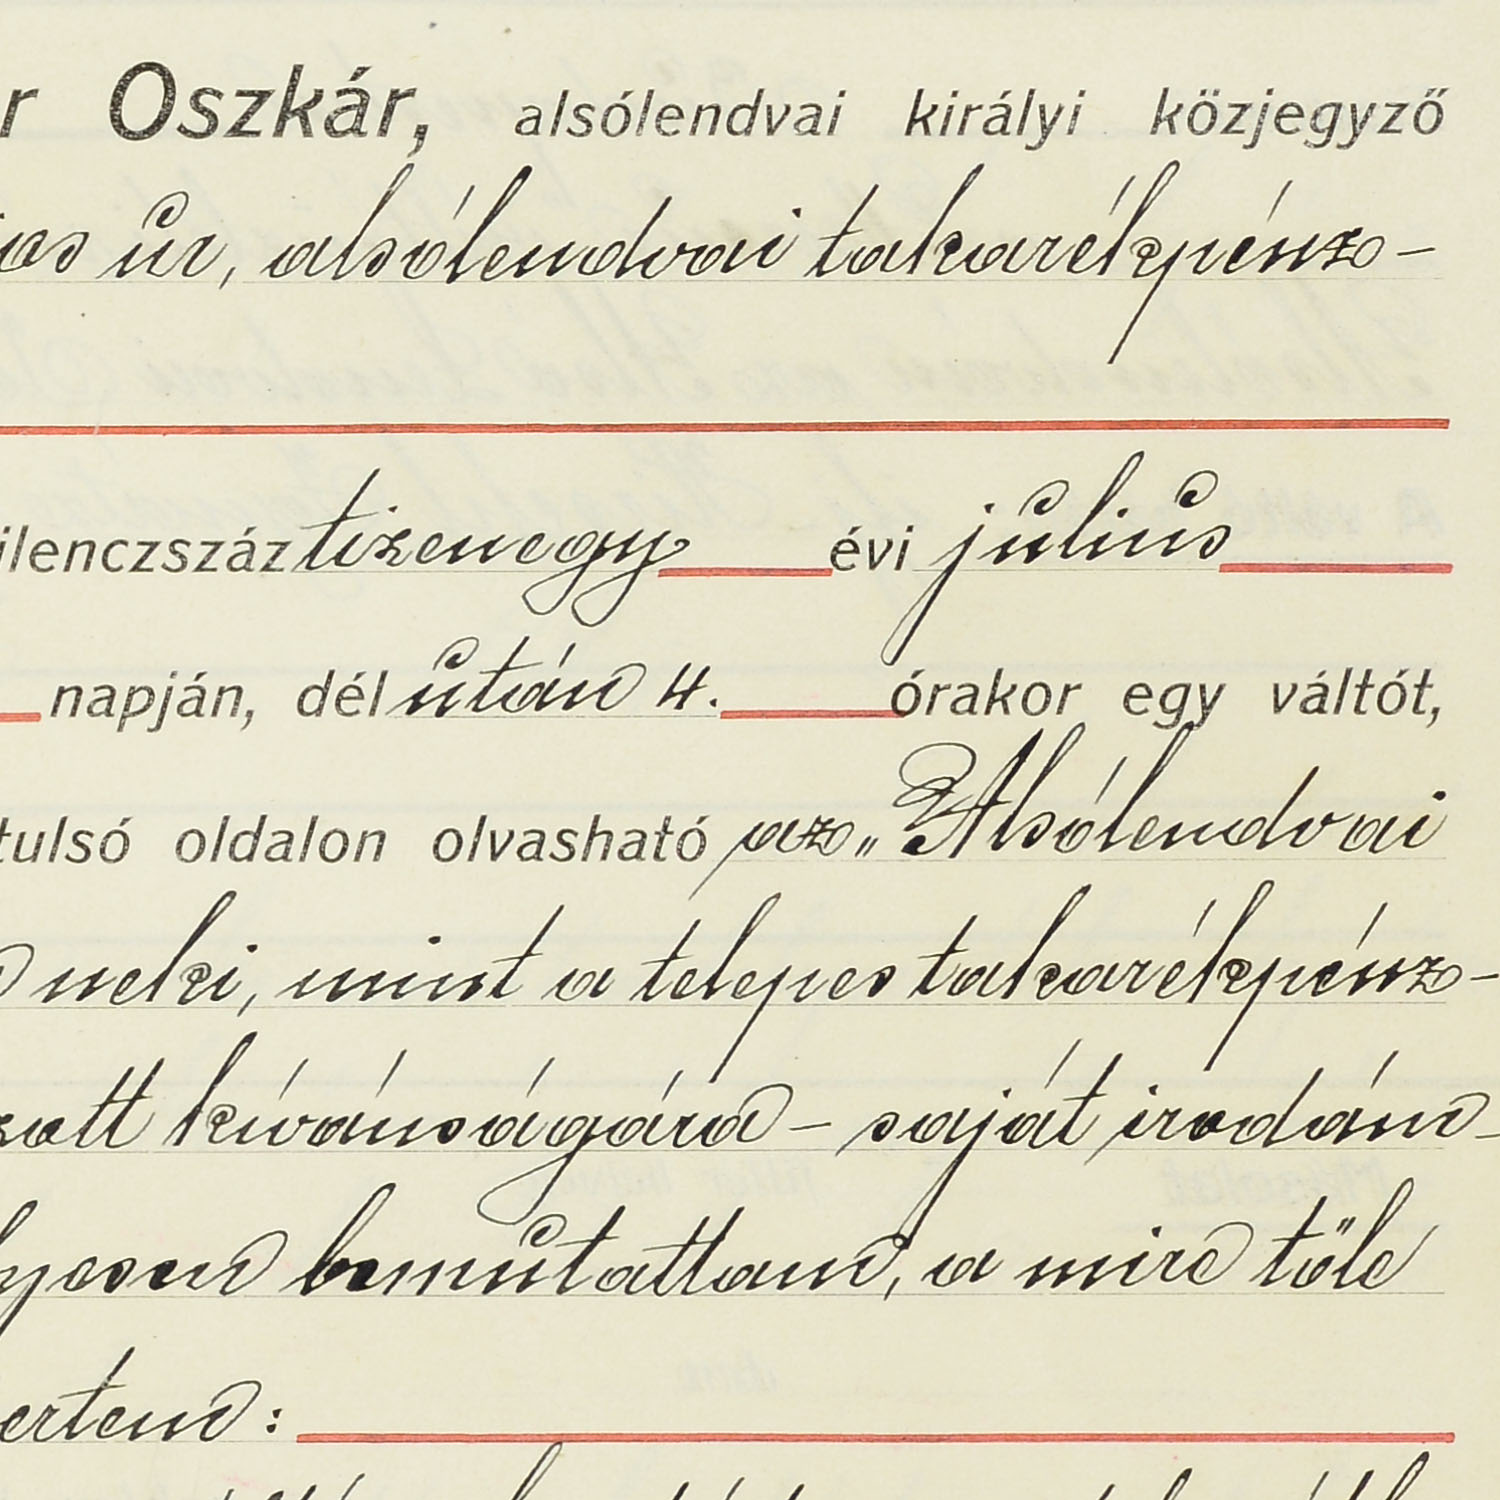 r Oszkár, alsólendvai királyi közjegyző
úr, alsólendvai takarékpénz-
ilenczszáz tizenegy évi július
napján, dél után 4. órakor egy váltót,
tulsó oldalon olvasható az „Alsólendvai
neki, mint a telepes takarékpénz-
kívánságára - saját irodám-
bemutattam, a mire tőle